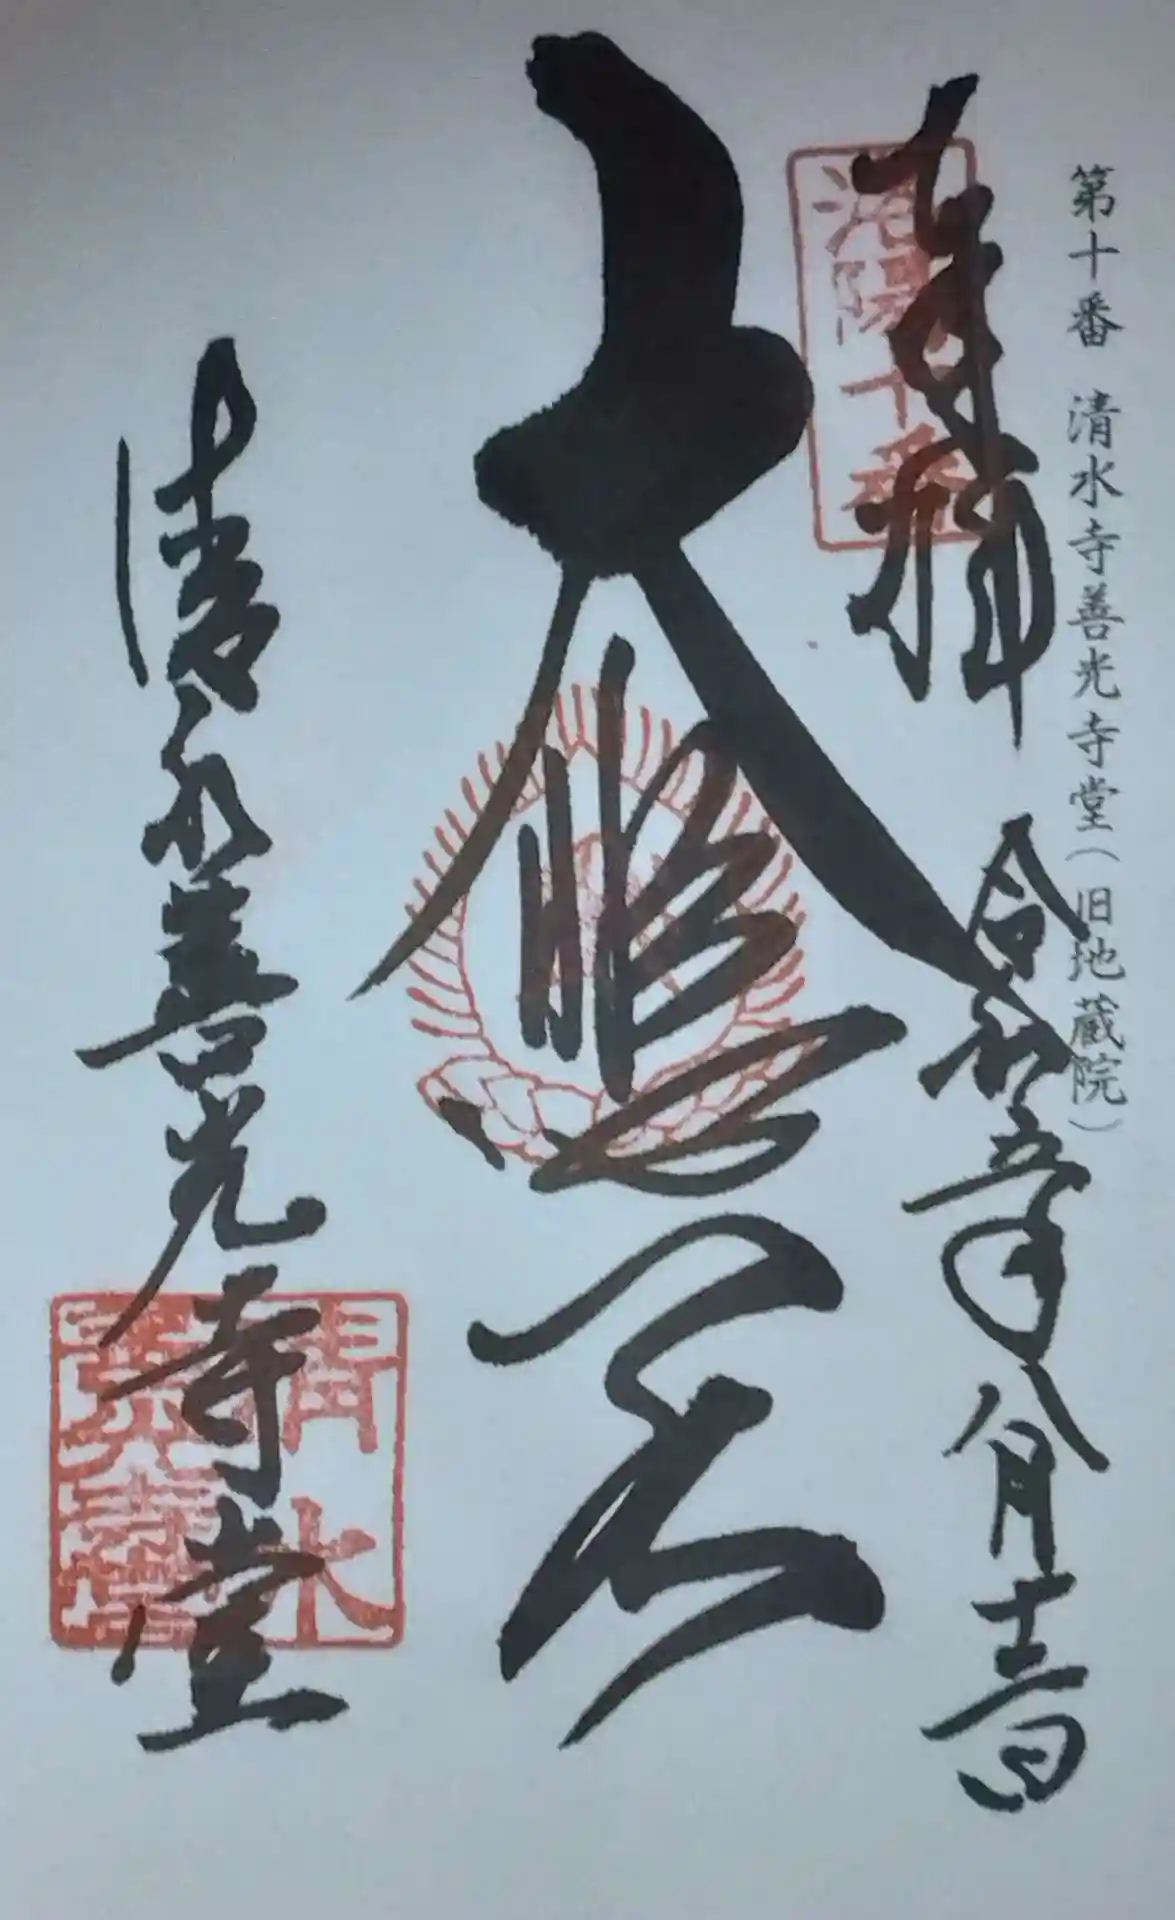 第十番 清水寺善光寺堂(旧地蔵院)
奉拝
洛陽十番
令和五年八月十三日
大悲閣
清水善光寺堂
清水
善光寺堂